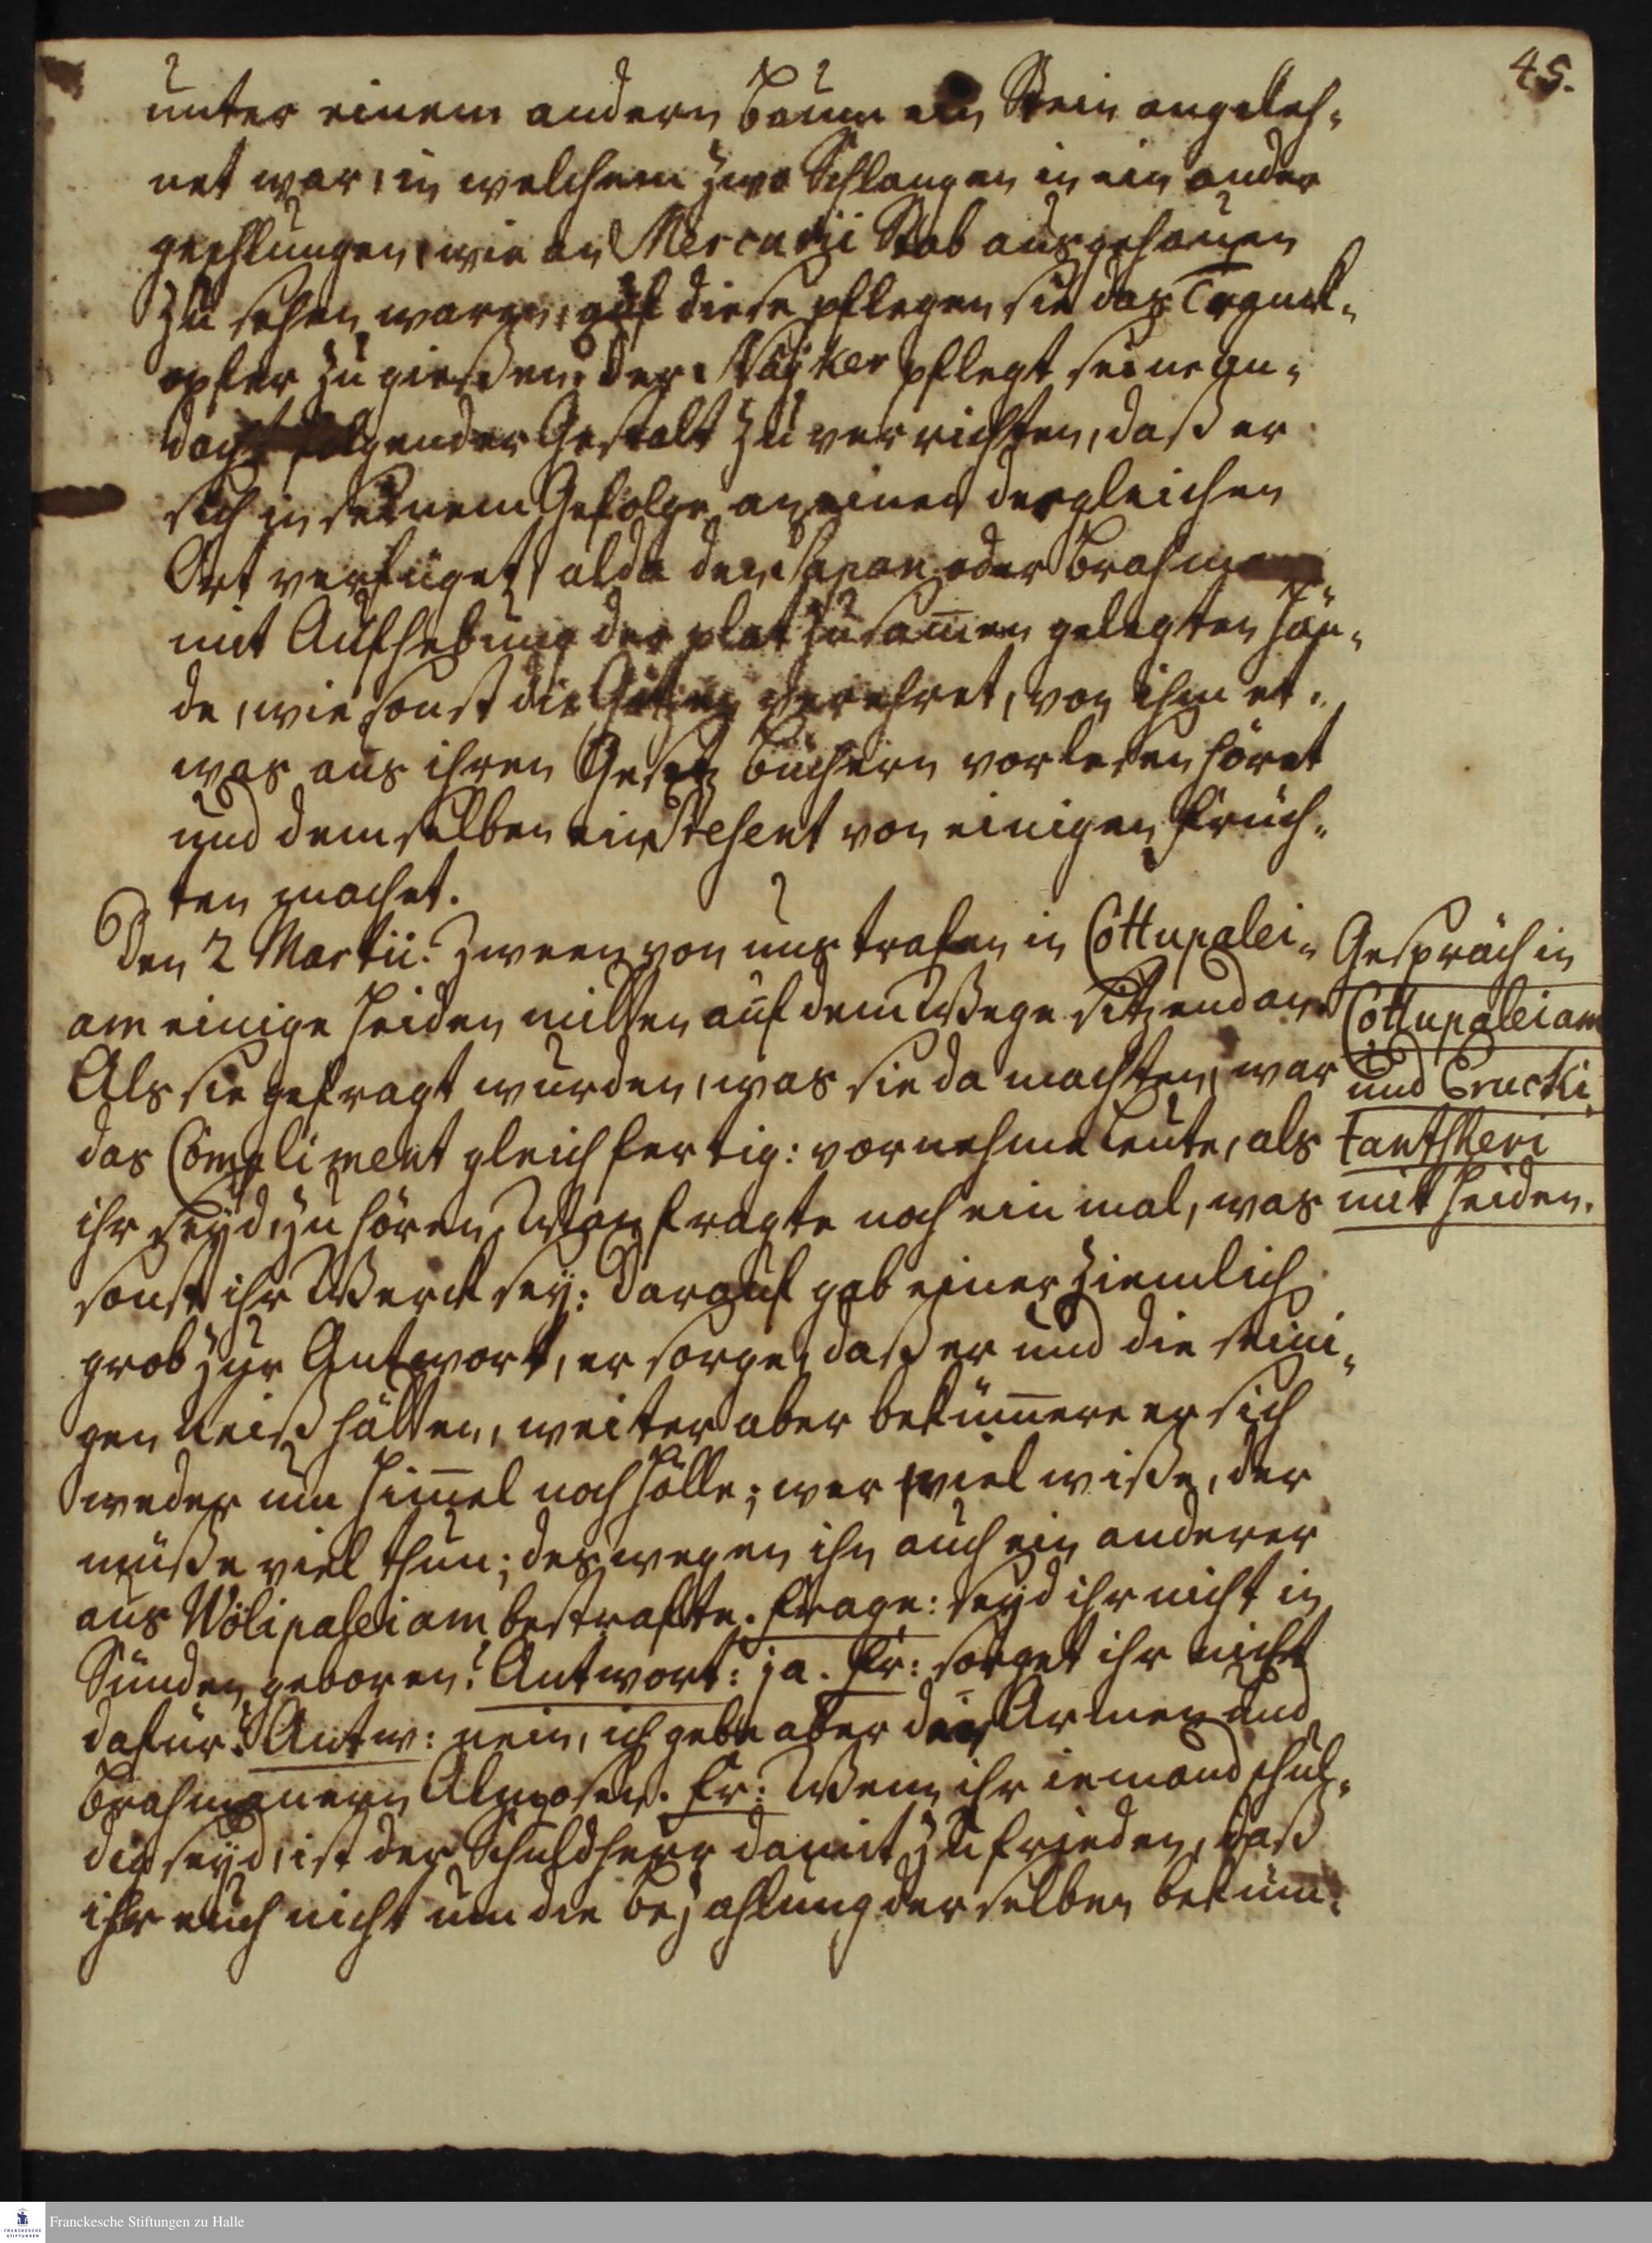 45.
unter einem andern Baum ein Stein angeleh-
net war, in welchem zwo Schlangen in ein ander
geschlungen, wie an Mercurii Stab ausgehauen
zu sehen waren; auf diese pflegen sie das Tranck-
opfer zu gießen. der Näiker pflegt seine an-
dacht folgender Gestalt zu verrichten, daß er
sich in seinem Gefolge an einen dergleichen
Ort verfüget, alda den oder Brahman
mit Aufhebung der plat zusam̅en gelegten Hän-
de, wie sonst die Götzen verehret, von ihm et-
was aus ihren Gesetz Büchern vorlesen höret
und demselben ein Present von einigen Früch-
ten machet.
Den 2 Martii. Zween von uns trafen in Cottupalei-
am einige Heiden mitten auf dem Wege sitzend an.
Als sie gefragt wurden, was sie da machten, war
das Compliment gleich fertig: vornehme Leute, als
ihr seyd, zu hören. Man fragte noch ein mal, was
sonst ihr Werck sey: Darauf gab einer ziemlich
grob zur Antwort, er sorge, daß er und die seini-
gen Reiß hätten, weiter aber beküm̅ere er sich
weder um Him̅el noch Hölle; wer viel wiße, der
müße viel thun; deswegen ihn auch ein anderer
aus Wölipaleiam bestrafte. Frage: seyd ihr nicht in
Sünden geboren? Antwort: ja. Fr: sorget ihr nicht
dafür? Antw: nein, ich gebe aber den Armen und
Brahmanern Almosen. Fr: Wenn ihr iemand schul-
dig seyd, ist der Schuldherr damit zufrieden, daß
ihr euch nicht um die Bezahlung derselben beküm-
Gespräch in
Cottupaleiam
und Erucki
tantscheri
mit Heiden.
Franckesche Stiftungen zu Halle